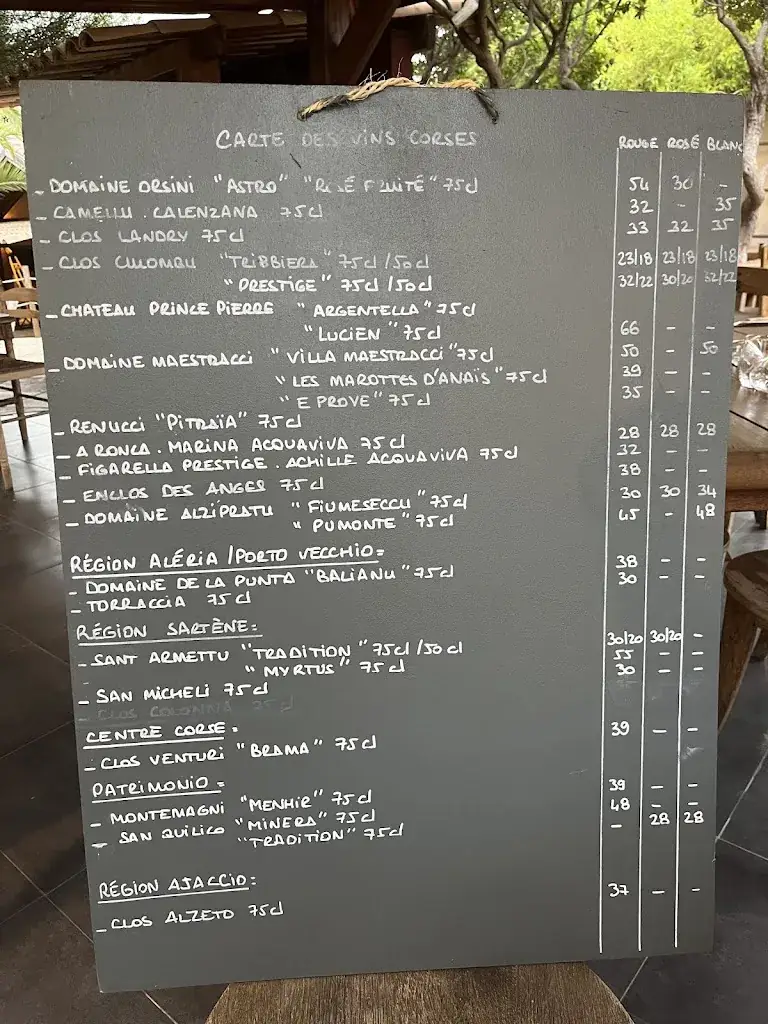 CARTE DES VINS CORSES ROUGE ROSÉ BLANC
- DOMAINE ORSINI "ASTRO" "ROSÉ FRUITÉ" 75cl 54 30 -
- CAMELLU . CALENZANA 75cl 32 - 35
- CLOS LANDRY 75cl 33 32 35
- CLOS CULOMBU "TRIBBIERA" 75cl /50cl 23/18 23/18 23/18
"PRESTIGE" 75cl /50cl 32/22 30/20 32/22
- CHATEAU PRINCE PIERRE "ARGENTELLA" 75cl
"LUCIEN" 75cl 66 - -
- DOMAINE MAESTRACCI "VILLA MAESTRACCI" 75cl 50 - 50
"LES MAROTTES D'ANAÏS" 75cl 39 - -
"E PROVE" 75cl 35 - -
- RENUCCI "PITRAÏA" 75cl 28 28 28
- A RONCA . MARINA ACQUAVIVA 75cl 32 - -
- FIGARELLA PRESTIGE . ACHILLE ACQUAVIVA 75cl 38 - -
- ENCLOS DES ANGES 75cl 30 30 34
- DOMAINE ALZIPRATU "FIUMESECCU" 75cl 45 - 48
" PUMONTE" 75cl
RÉGION ALÉRIA /PORTO VECCHIO=
- DOMAINE DE LA PUNTA "BALIANU" 75cl 38 - -
- TORRACCIA 75cl 30 - -
RÉGION SARTÈNE=
- SANT ARMETTU "TRADITION" 75cl /50cl 30/20 30/20 -
" MYRTUS" 75cl 55 - -
- SAN MICHELI 75cl 30 - -
- CLOS COLONNA 75cl
CENTRE CORSE=
- CLOS VENTURI "BRAMA" 75cl 39 - -
PATRIMONIO=
- MONTEMAGNI "MENHIR" 75cl 39 - -
- SAN QUILICO "MINERA" 75cl 48 - -
"TRADITION" 75cl - 28 28
RÉGION AJACCIO=
- CLOS ALZETO 75cl 37 - -